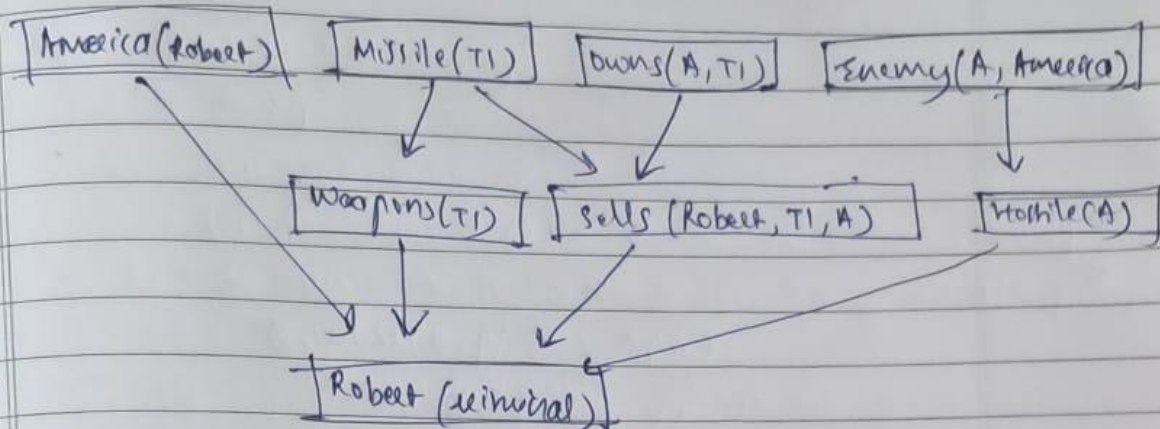 America(Robert) Missile(T1) Owns(A, T1) Enemy(A, America)
Weapons(T1) Sells (Robert, T1, A) Hostile(A)
Robert (criminal)